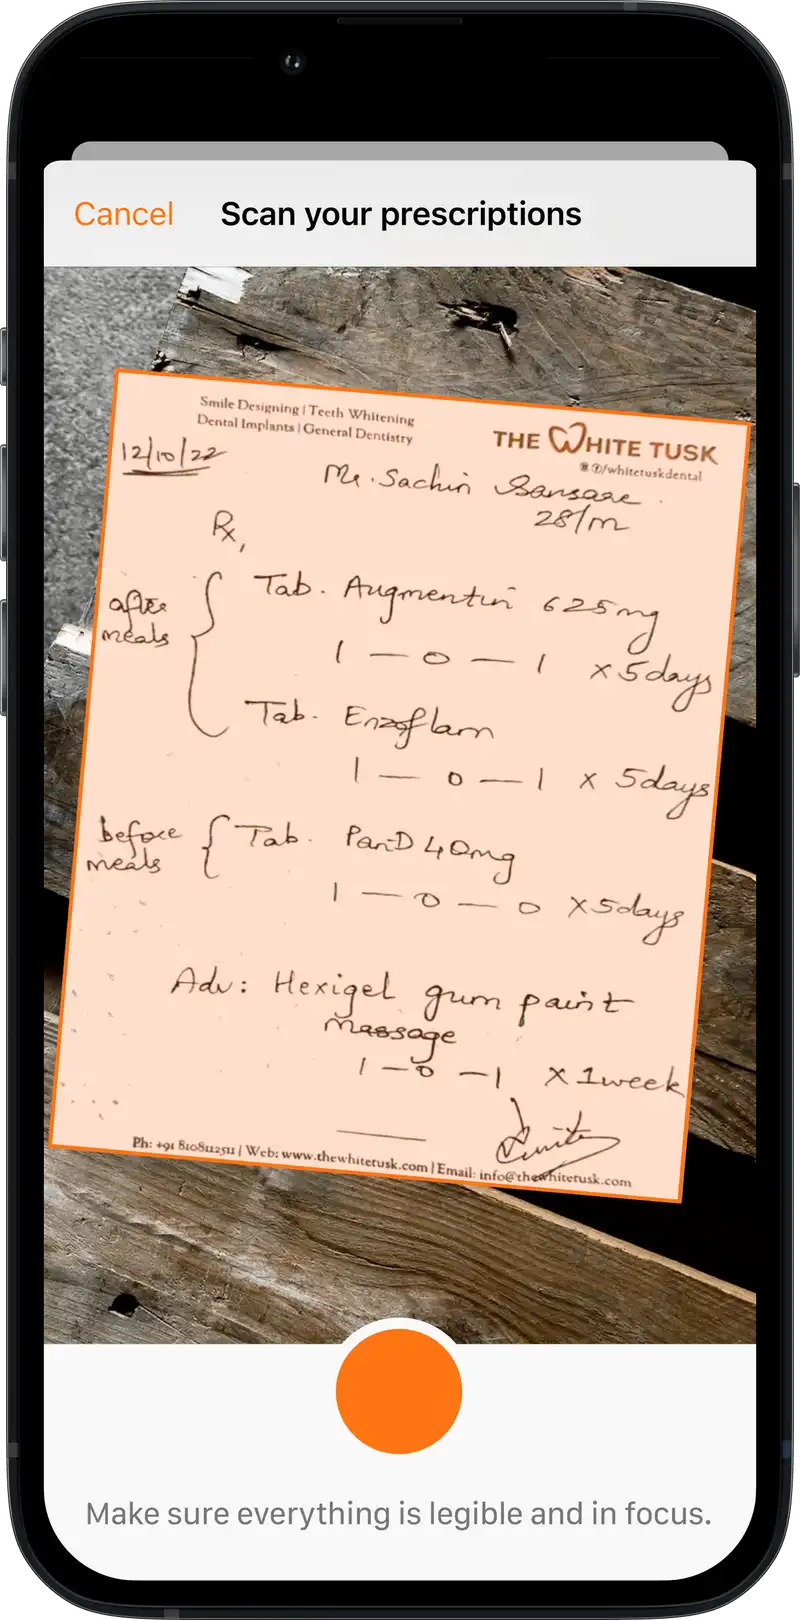 Cancel
Scan your prescriptions
Smile Designing | Teeth Whitening
Dental Implants | General Dentistry
THE WHITE TUSK
/whitetuskdental
12/10/22
Mr. Sachin Sansare
28/m
Rx,
after
meals
Tab. Augmentin 625mg
1 — 0 — 1 x 5days
Tab. Enzoflam
1 — 0 — 1 x 5days
before
meals
Tab. PanD 40mg
1 — 0 — 0 x 5days
Adv: Hexigel gum paint
massage
1 — 0 — 1 x 1week
Ph: +91 8108112511 | Web: www.thewhitetusk.com | Email: info@thewhitetusk.com
Make sure everything is legible and in focus.